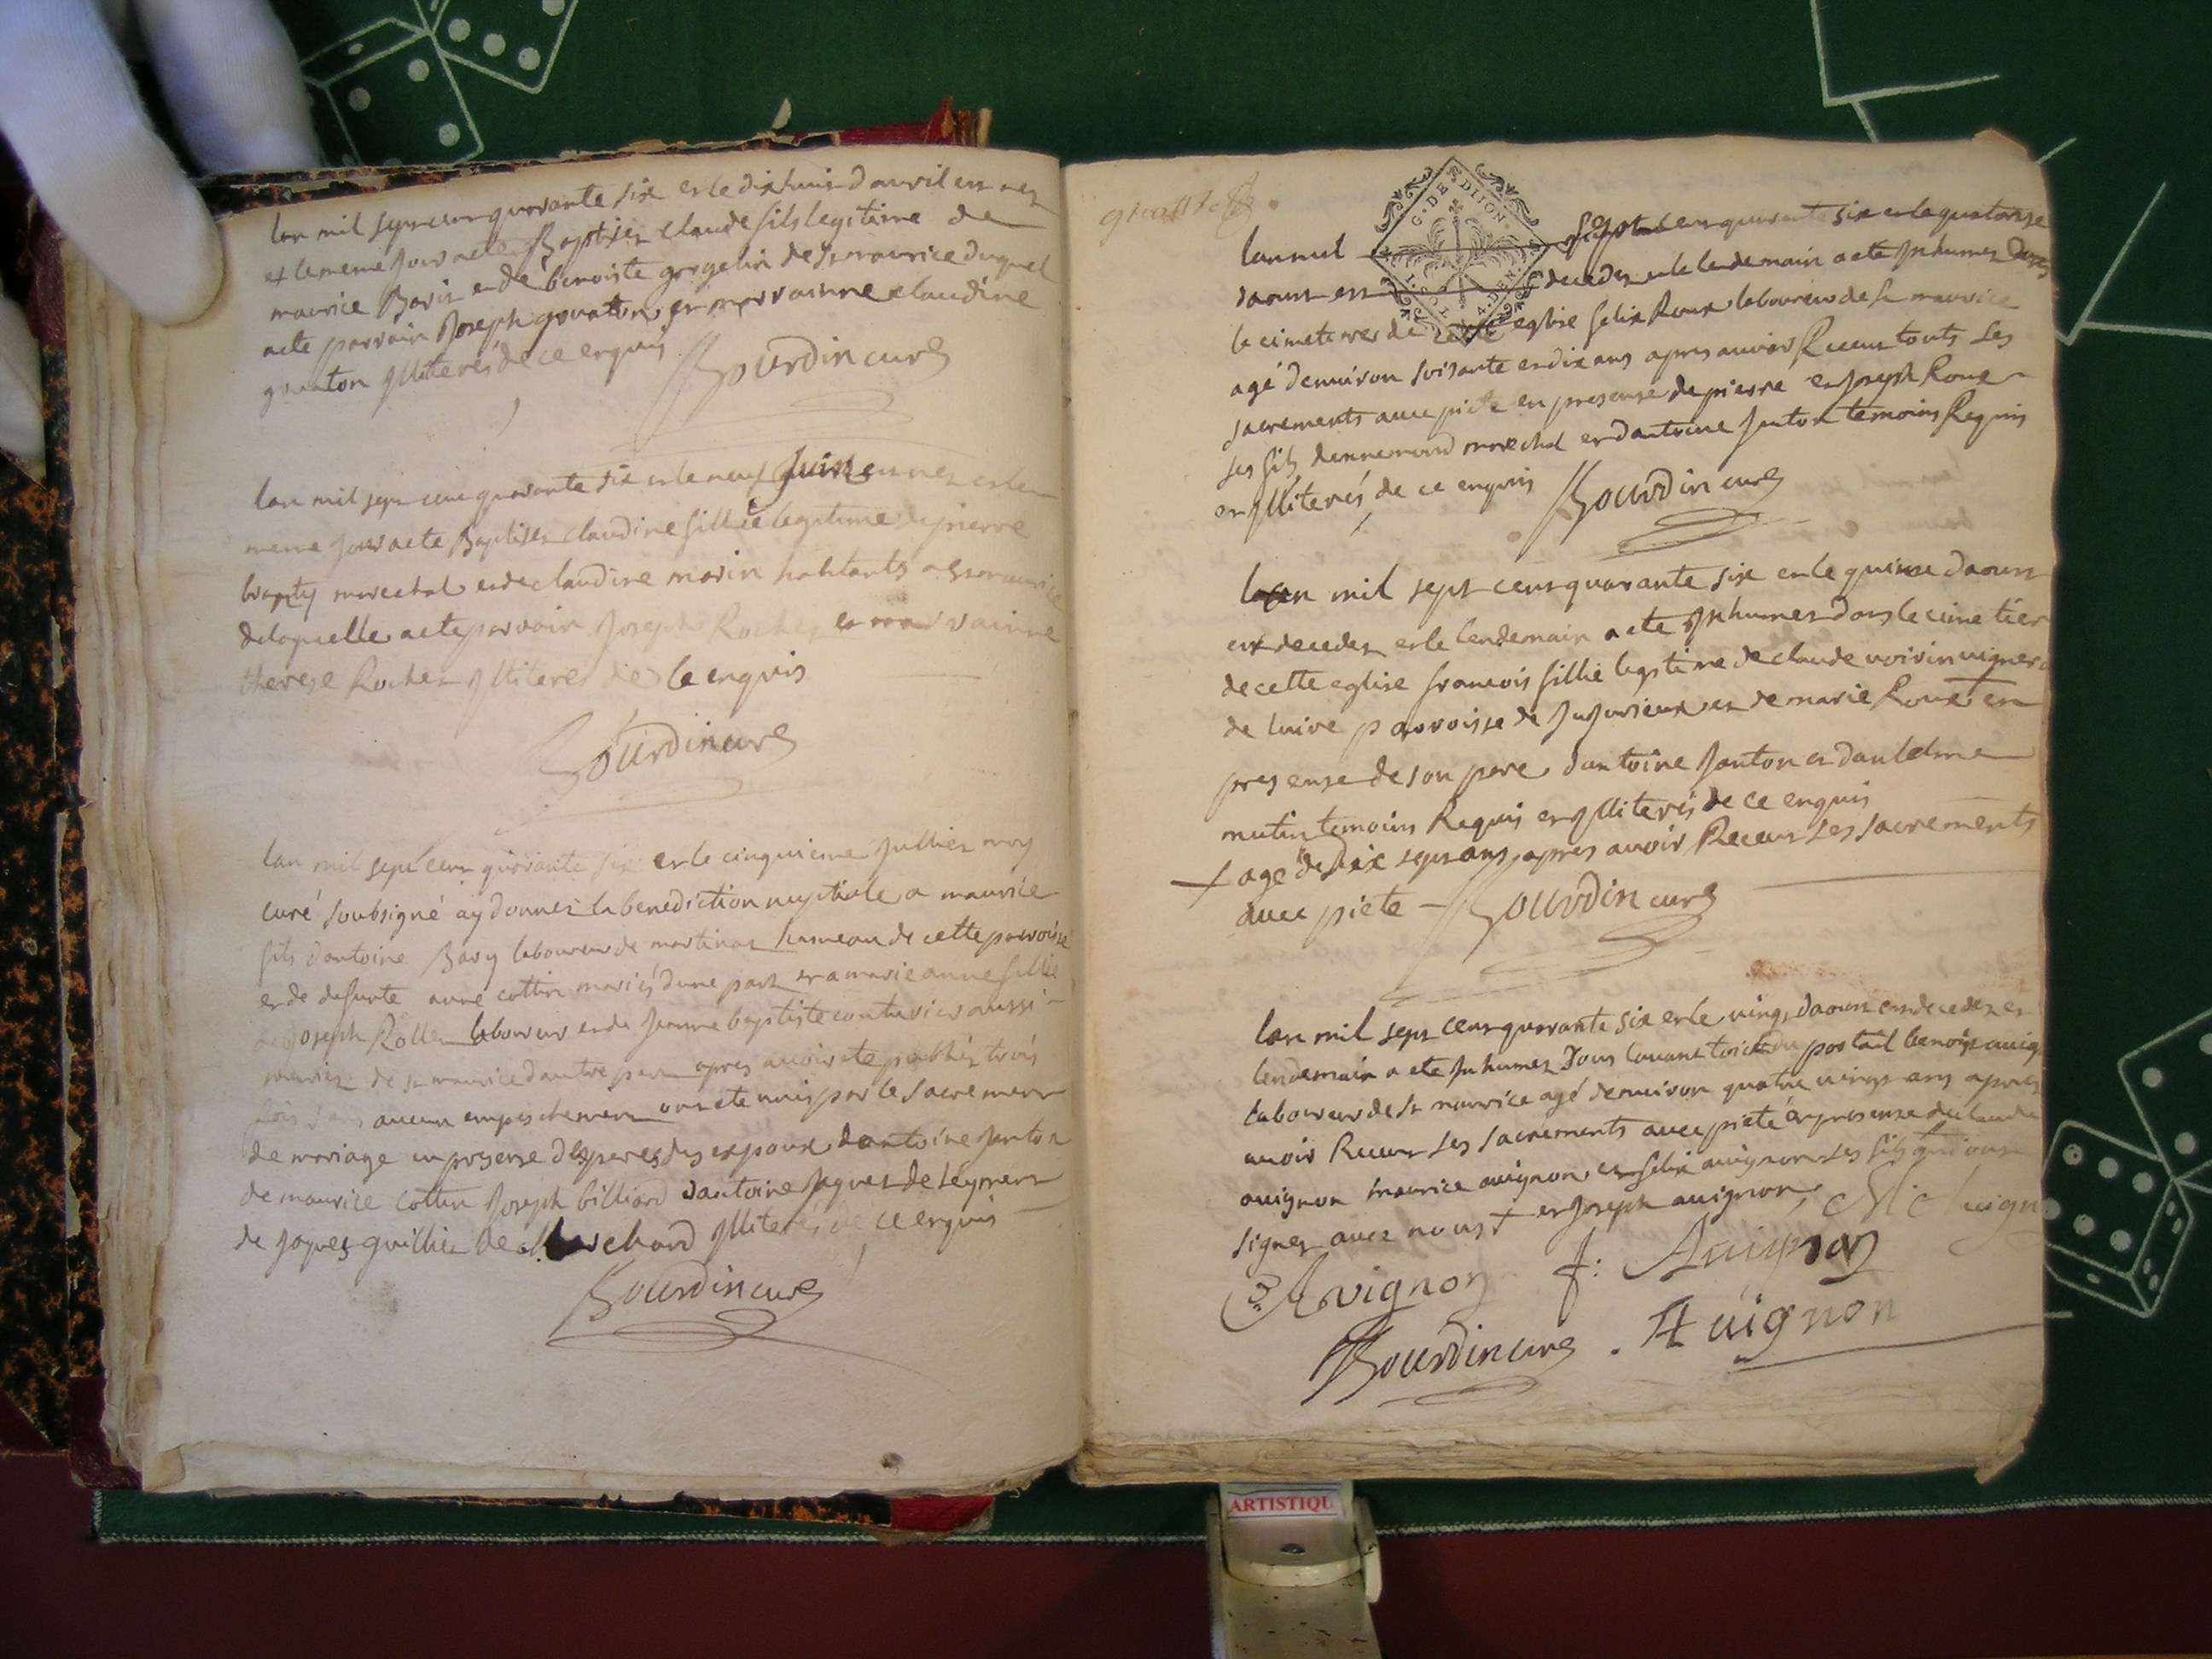 lan mil sept cent quarante six et le dixhuit davril est nez
et le meme jour a ete Baptisez claude fils legitime de
maurice Bariz et de benoiste gorgelin de St maurice duquel
a ete parrain Joseph gonaton et marrainne claudine
gonaton Illiterés de ce enquis Bourdin curé
lan mil sept cent quarante six et le neuf Juin est nez et le
meme jour a ete Baptisez claudine fillie legitime de pierre
maréchal et de claudine morin habitants a St maurice
de laquelle a ete parrain Joseph Rochez et marrainne
therese Rochez Illiteres de ce enquis
Bourdin curé
lan mil sept cent quarante six et le cinquieme Julliet moy
curé soubsigné ay donnez la benediction nuptiale a maurice
fils dantoine Bary laboureur de martinaz hameau de cette parroisse
et de defunte anne cottin mariés dune part et a marie anne fillie
de joseph Rollet laboureur et de Jeanne baptiste couturier aussi
mariez de St maurice dautre part apres avoir ete publiéz trois
fois sans aucun empeschement ont ete unis par le sacrement
de mariage en presense des peres des epoux dantoine Janton
de maurice cottin Joseph billiard dantoine Jaques de Leyment
de Jaques guillier de Marchard Illiterés de ce enquis
Bourdin curé
lan mil sept cent quarante six et le quatorze
daoust est decedez et le lendemain a ete Inhumez dans
le cimetierre de cette eglise felix Roux laboureur de St maurice
agé denviron soisante et dix ans apres avoir Receu touts Les
sacrements avec piete en presense de pierre et Joseph Roux
ses fils dennemond marechal et dantoine Janton temoins Requis
et Illiterés de ce enquis Bourdin curé
lan mil sept cent quarante six et le quinze daoust
est decedez et le lendemain a ete Inhumez dans le cimetier
de cette eglise francois fillie legitime de claude voirin vigneron
de luire parroisse de Jujurieux et de marie Roux en
presense de son pere dantoine Janton et dantelme
mutin temoins Requis et Illiterés de ce enquis
+ age de dix sept ans apres avoir Receu Les sacrements
avec piete Bourdin curé
lan mil sept cent quarante six et le vingt daoust est decedez et
lendemain a ete Inhumez sous lavant toict du portail benoist avig
laboureur de St maurice agé denviron quatre vingt ans apres
avoir Receu Les sacrements avec pieté en presense de claude
avignon maurice avignon et felix avignon ses fils qui ont
signez avec nous + et Joseph avignon M: Avign
C Avignon f: Avignon
Bourdin curé . A vignon
G. DE DIJON
4. DEN.
ARTISTIQU